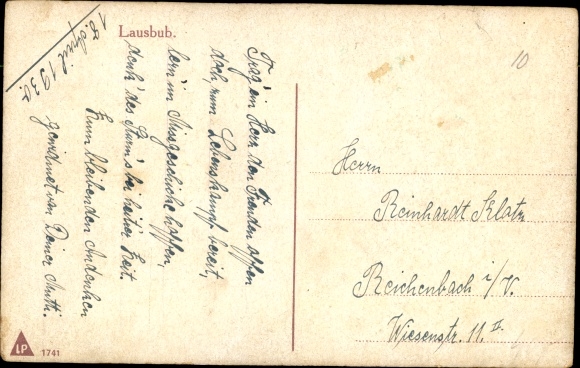 Lausbub.
18. April 1930.
Trag' ein Herz den Freuden offen
doch zum Lebenskampf bereit,
lern im Missgeschicke hoffen,
denk' des Sturm's bei heit'rer Zeit.
Zum bleibenden Andenken
gewidmet von Deiner Mutti.
10
Herrn
Reinhardt Klatz
Reichenbach i/V.
Wiesenstr. 11. II.
LP 1741